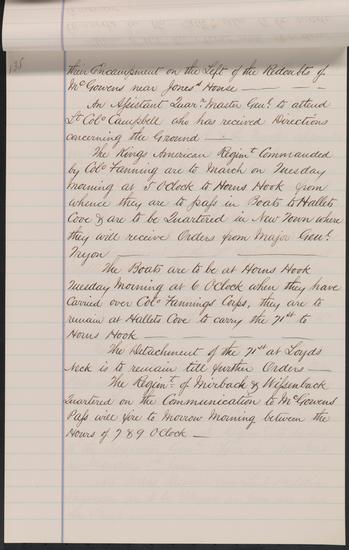 135
their Encampment on the Left of the Redoubts of
McGowens near Jones's House
An Assistant Quarr. Master Genl. to attend
Lt. Colo. Campbell who has received Directions
concerning the Ground
The Kings American Regimt. Commanded
by Colo. Fanning are to March on Tuesday
Morning at 5 OClock to Horns Hook from
whence they are to pass in Boats to Hallets
Cove & are to be Quartered in New Town where
they will receive Orders from Major Genl.
Tryon
The Boats are to be at Horns Hook
Tuesday Morning at 6 OClock when they have
Carried over Colo. Fannings Corps, they are to
remain at Hallets Cove to carry the 71st to
Horns Hook
The Detachment of the 71st at Loyds
Neck is to remain till further Orders
The Regimt. of Mirback & Wissenback
Quartered on the Communication to McGowens
Pass will fire to Morrow Morning between the
Hours of 7 & 9 OClock